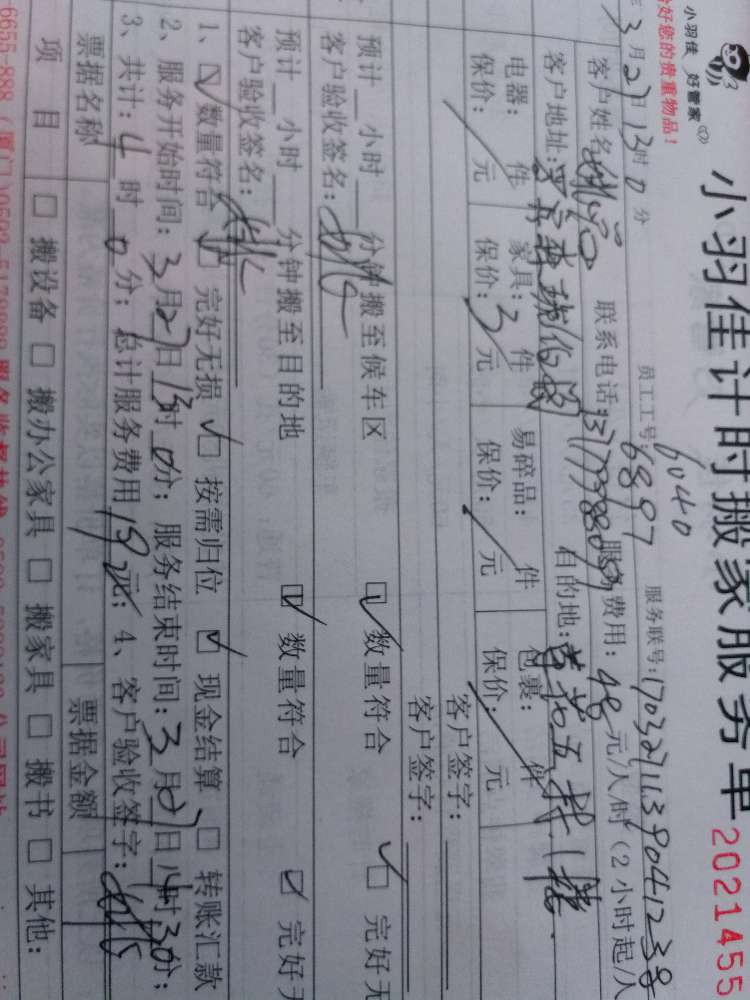 小羽佳 好管家
小羽佳计时搬家服务单
20214554
好您的贵重物品!
6040
3月27日13时0分 员工工号:6897 服务联号:170327113904123
客户姓名: 联系电话: 服务费用:48元/人/时(2小时起/人
客户地址: 目的地:
电器: 件 家具: 3 件 易碎品: 件 包裹: 件
保价: 元 保价: 元 保价: 元 保价: 元
客户签字:
客户签字:
预计 小时 分钟搬至候车区 数量符合 完好无
客户验收签名:
预计 小时 分钟搬至目的地 数量符合 完好无
客户验收签名:
1、 数量符合 完好无损 按需归位 现金结算 转账汇款
2、服务开始时间:3月27日13时0分; 服务结束时间:3月27日14时30分;
3、共计:4时0分; 总计服务费用192元; 4、客户验收签字:
票据名称 票据金额
项目 搬设备 搬办公家具 搬家具 搬书 其他:
6655-888(厦门)0592-5178888